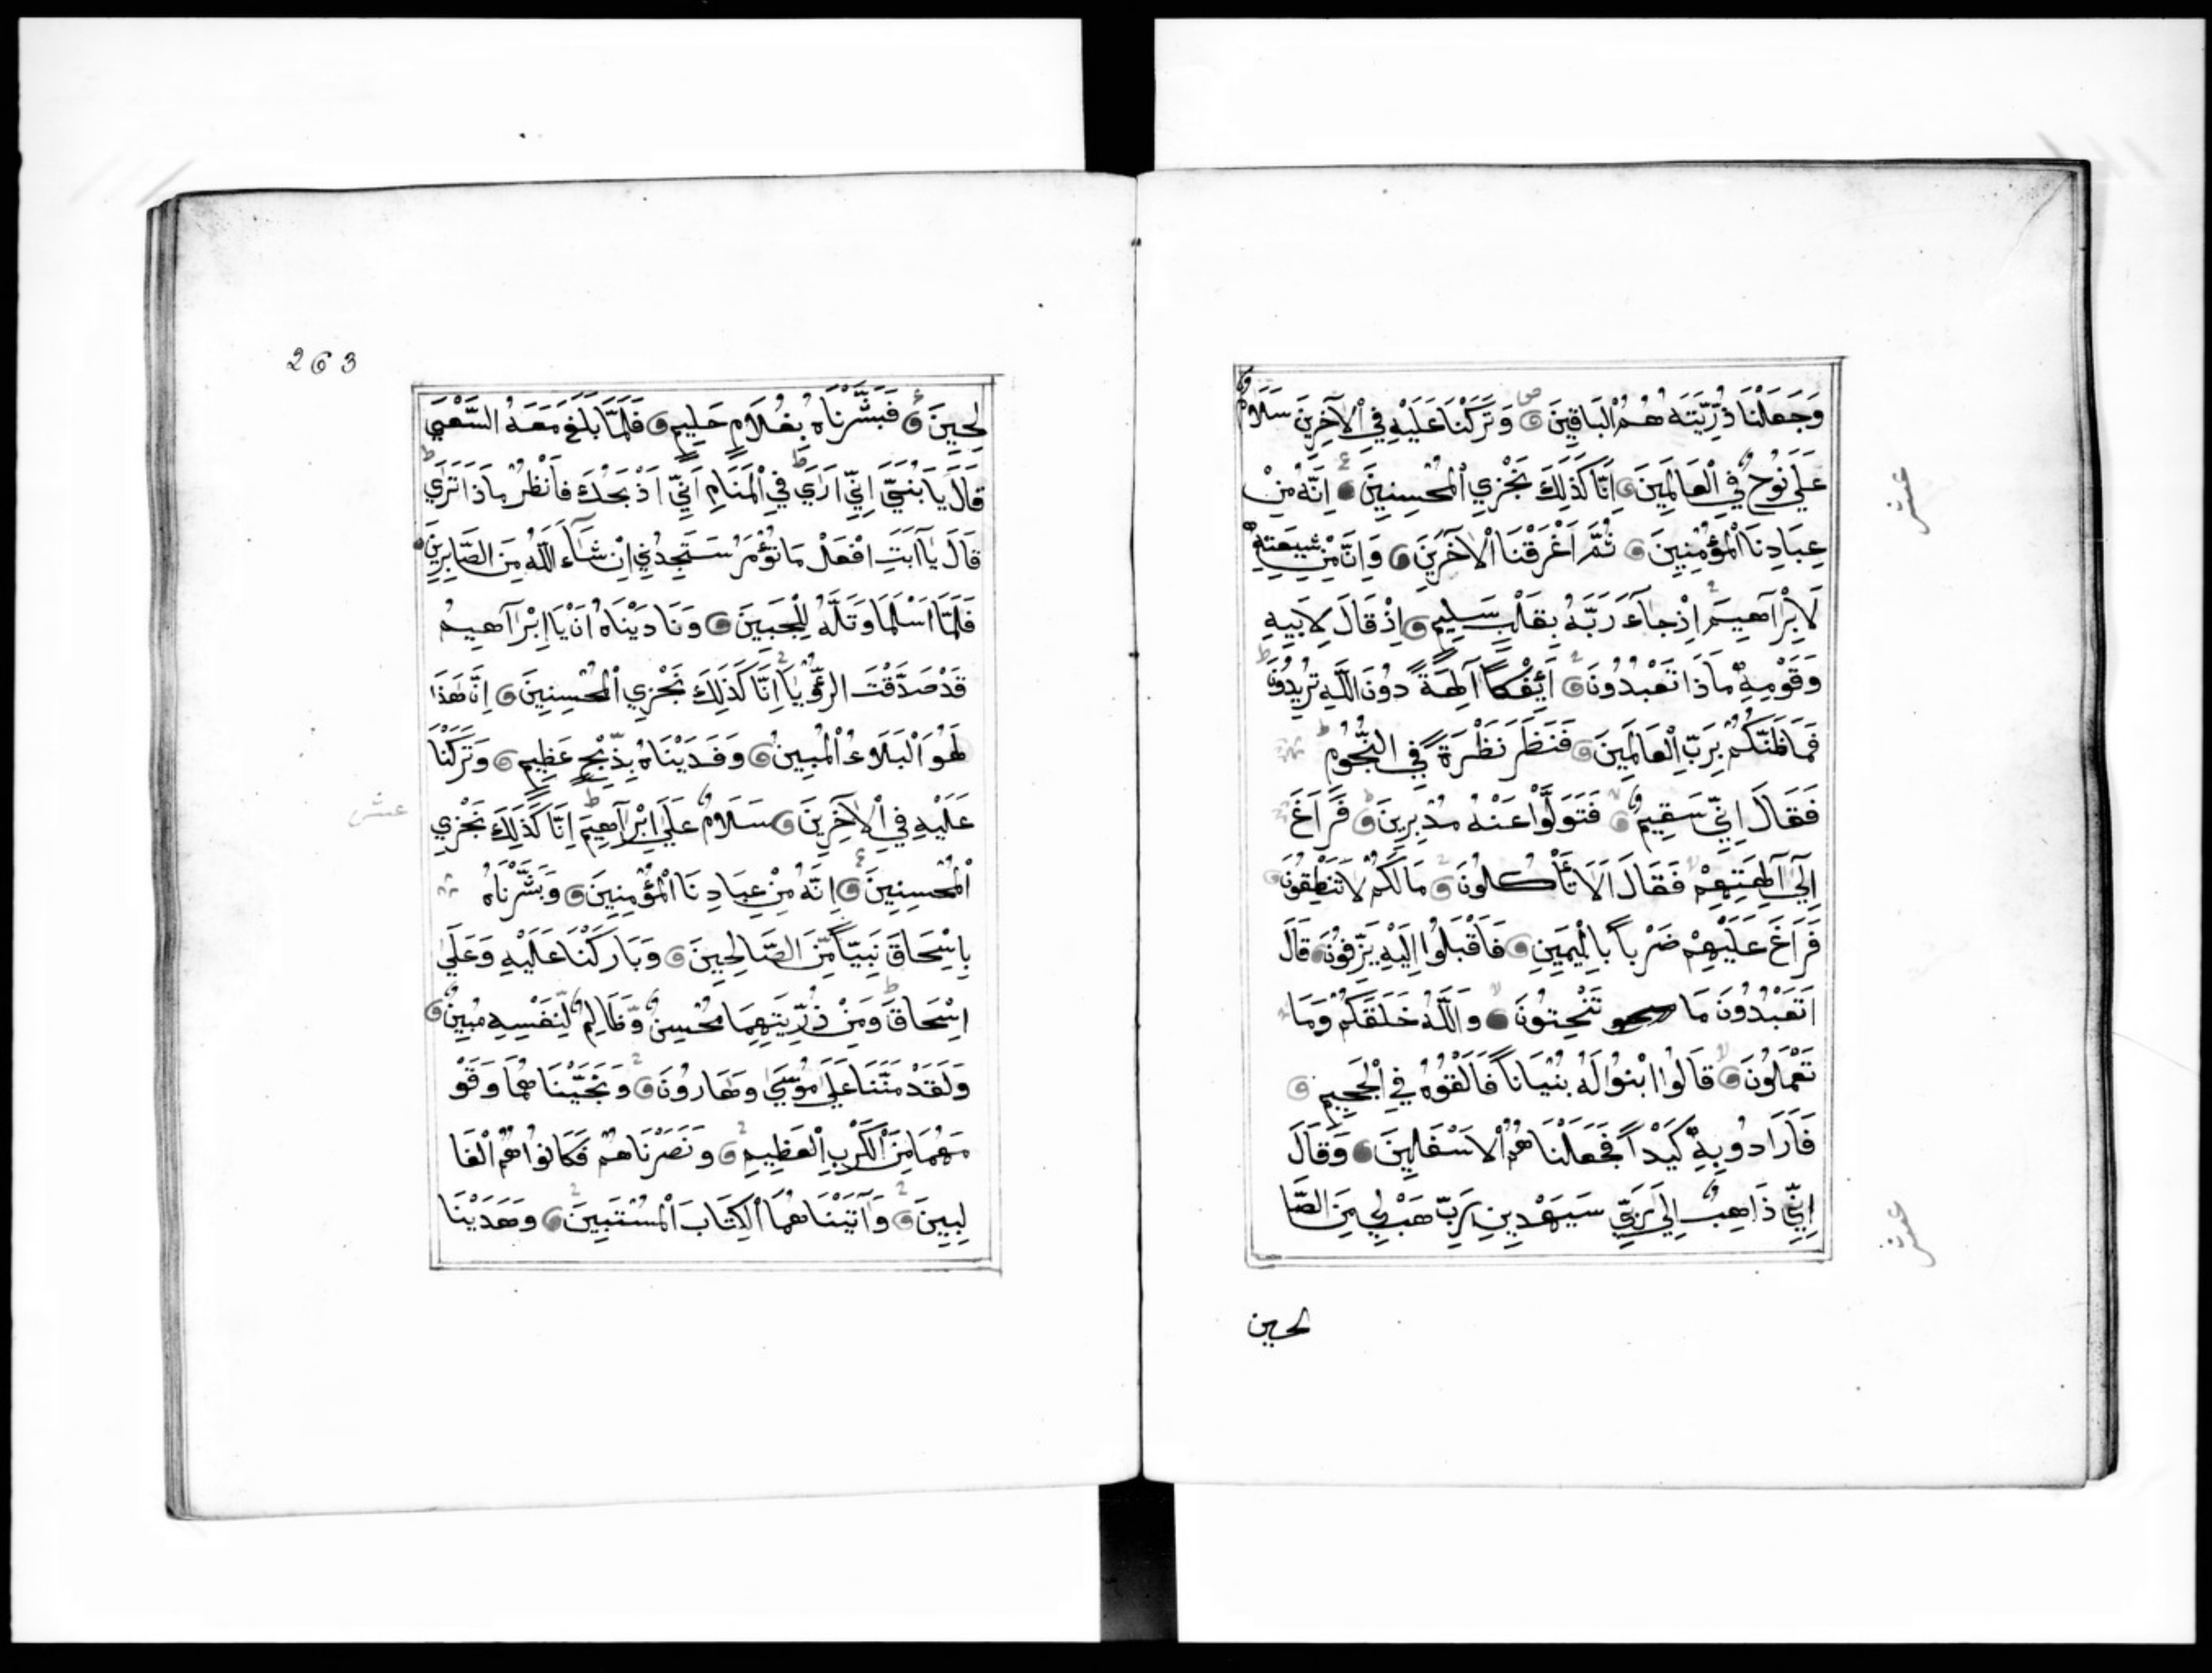 وَجَعَلْنَا ذُرِّيَّتَهُ هُمُ الْبَاقِينَ وَتَرَكْنَا عَلَيْهِ فِي الْآخِرِينَ سَلَامٌ
عَلَى نُوحٍ فِي الْعَالَمِينَ اِنَّا كَذَلِكَ نَجْزِي الْمُحْسِنِينَ اِنَّهُ مِنْ
عِبَادِنَا الْمُؤْمِنِينَ ثُمَّ اَغْرَقْنَا الْآخَرِينَ وَاِنَّ مِنْ شِيعَتِهِ
لَاِبْرَآهِيمَ اِذْ جَآءَ رَبَّهُ بِقَلْبٍ سَلِيمٍ اِذْ قَالَ لِاَبِيهِ
وَقَوْمِهِ مَاذَا تَعْبُدُونَ اَئِفْكاً آلِهَةً دُونَ اللَّهِ تُرِيدُونَ
فَمَا ظَنُّكُمْ بِرَبِّ الْعَالَمِينَ فَنَظَرَ نَظْرَةً فِي النُّجُومِ
فَقَالَ اِنِّي سَقِيمٌ فَتَوَلَّوْا عَنْهُ مُدْبِرِينَ فَرَاغَ
اِلَى آلِهَتِهِمْ فَقَالَ اَلَا تَأْكُلُونَ مَا لَكُمْ لَا تَنْطِقُونَ
فَرَاغَ عَلَيْهِمْ ضَرْباً بِالْيَمِينِ فَاَقْبَلُوا اِلَيْهِ يَزِفُّونَ قَالَ
اَتَعْبُدُونَ مَا تَنْحِتُونَ وَاللَّهُ خَلَقَكُمْ وَمَا
تَعْمَلُونَ قَالُوا ابْنُوا لَهُ بُنْيَاناً فَاَلْقُوهُ فِي الْجَحِيمِ
فَاَرَادُو بِهِ كَيْداً فَجَعَلْنَاهُمُ الْاَسْفَلِينَ وَقَالَ
اِنِّي ذَاهِبٌ اِلَى رَبِّي سَيَهْدِينِ رَبِّ هَبْ لِي مِنَ الصَّا
لحين
عشر
عشر
263
لِحِينَ فَبَشَّرْنَاهُ بِغُلَامٍ حَلِيمٍ فَلَمَّا بَلَغَ مَعَهُ السَّعْيَ
قَالَ يَا بُنَيَّ اِنِّي اَرَى فِي الْمَنَامِ اَنِّي اَذْبَحُكَ فَانْظُرْ مَاذَا تَرَى
قَالَ يَا اَبَتِ افْعَلْ مَا تُؤْمَرُ سَتَجِدُنِي اِنْ شَآءَ اللَّهُ مِنَ الصَّابِرِينَ
فَلَمَّا اَسْلَمَا وَتَلَّهُ لِلْجَبِينَ وَنَادَيْنَاهُ اَنْ يَا اِبْرَآهِيمُ
قَدْ صَدَّقْتَ الرُّؤْيَا اِنَّا كَذَلِكَ نَجْزِي الْمُحْسِنِينَ اِنَّ هَذَا
لَهُوَ الْبَلَاءُ الْمُبِينُ وَفَدَيْنَاهُ بِذِبْحٍ عَظِيمٍ وَتَرَكْنَا
عَلَيْهِ فِي الْآخِرِينَ سَلَامٌ عَلَى اِبْرَآهِيمَ اِنَّا كَذَلِكَ نَجْزِي
الْمُحْسِنِينَ اِنَّهُ مِنْ عِبَادِنَا الْمُؤْمِنِينَ وَبَشَّرْنَاهُ
بِاِسْحَاقَ نَبِيّاً مِنَ الصَّالِحِينَ وَبَارَكْنَا عَلَيْهِ وَعَلَى
اِسْحَاقَ وَمِنْ ذُرِّيَّتِهِمَا مُحْسِنٌ وَظَالِمٌ لِنَفْسِهِ مُبِينٌ
وَلَقَدْ مَنَنَّا عَلَى مُوسَى وَهَارُونَ وَنَجَّيْنَاهُمَا وَقَوْ
مَهُمَا مِنَ الْكَرْبِ الْعَظِيمِ وَنَصَرْنَاهُمْ فَكَانُوا هُمُ الْغَا
لِبِينَ وَآتَيْنَاهُمَا الْكِتَابَ الْمُسْتَبِينَ وَهَدَيْنَا
عشر